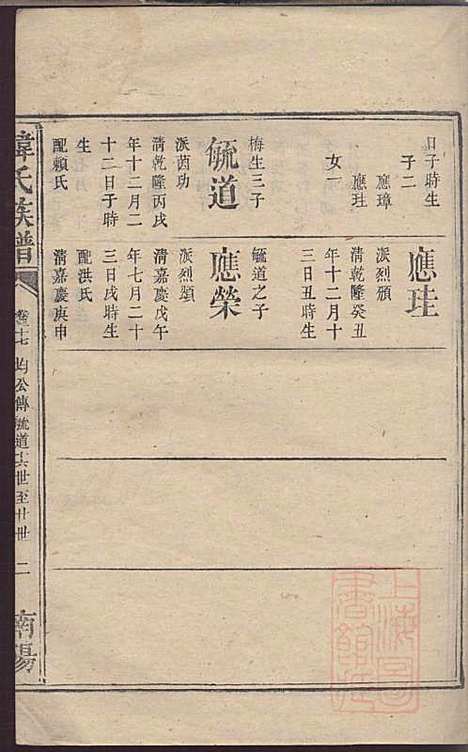 日子時生
子二
應璋
應珪
女一
毓道
梅生三子
派茵功
清乾隆丙戌
年十二月二
十二日子時
生
配賴氏
應珪
派烈頒
清乾隆癸丑
年十二月十
三日丑時生
應榮
毓道之子
派烈頒
清嘉慶戊午
年七月二十
三日戌時生
配洪氏
清嘉慶庚申
韋氏族譜
卷十七 均公傳毓道十六世至廿世 二
南陽
上海圖書館藏